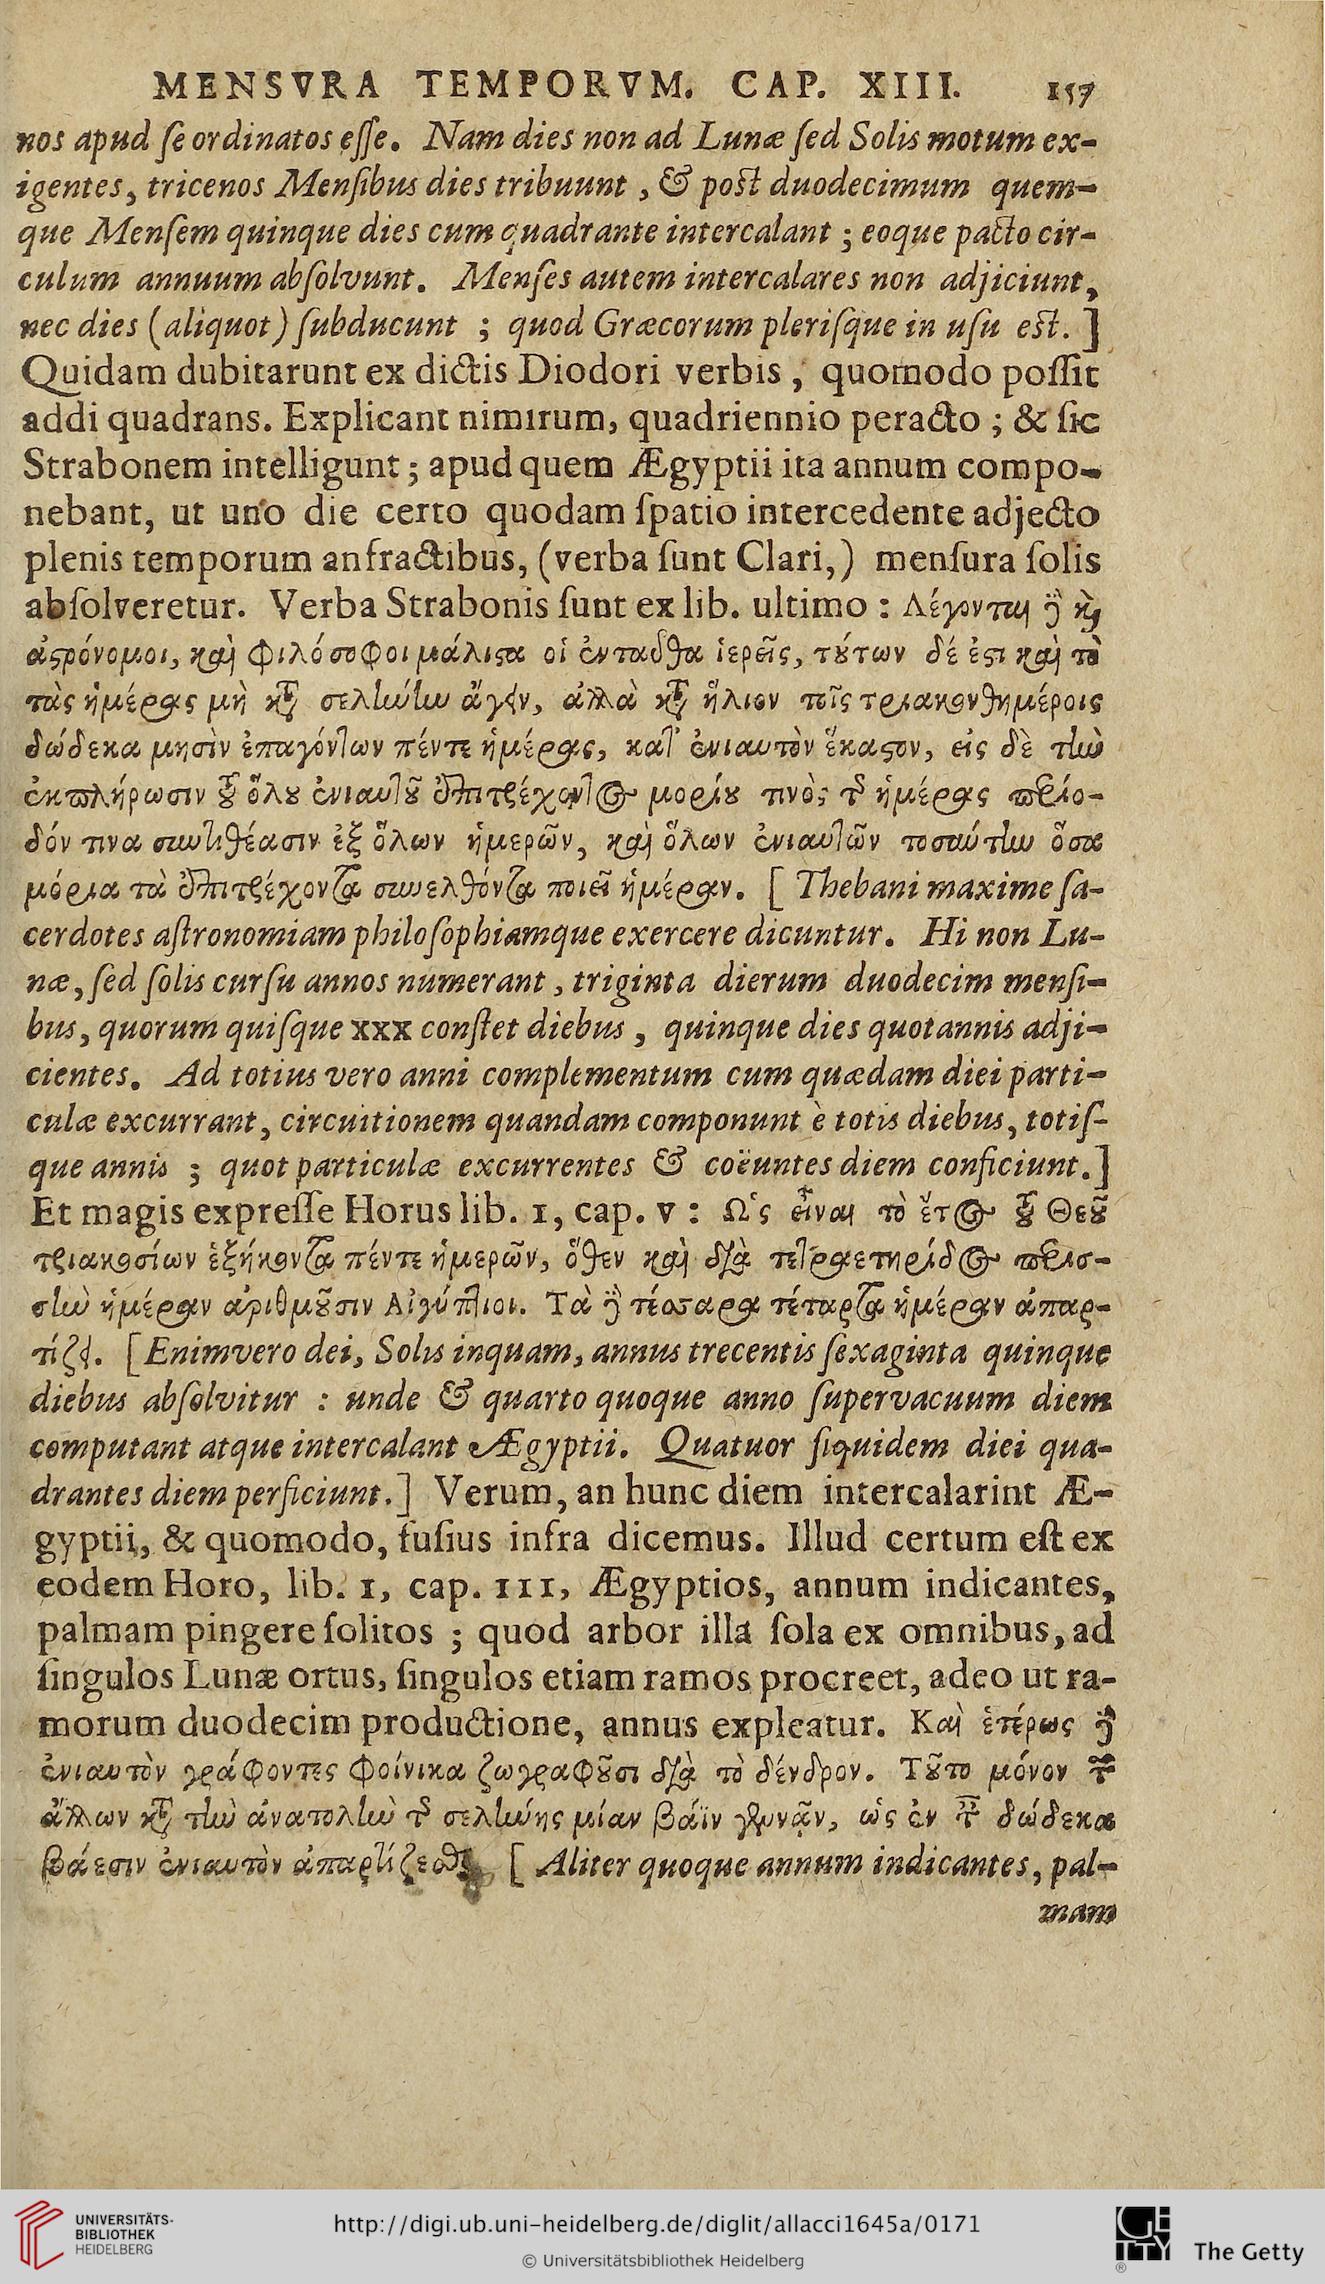 MENSVRA TEMPORVM. CAP. XIII. 157
nos apud ſe ordinatos eſſe. Nam dies non ad Lunæ ſed Solis motum ex-
igentes, tricenos Menſibus dies tribuunt, & poſt duodecimum quem-
que Menſem quinque dies cum quadrante intercalant; eoque pacto cir-
culum annuum abſolvunt. Menſes autem intercalares non adjiciunt,
nec dies (aliquot) ſubducunt ; quod Græcorum pleriſque in uſu eſt. ]
Quidam dubitarunt ex dictis Diodori verbis, quomodo poſſit
addi quadrans. Explicant nimirum, quadriennio peracto; & ſic
Strabonem intelligunt; apud quem Ægyptii ita annum compo-
nebant, ut uno die certo quodam ſpatio intercedente adjecto
plenis temporum anfractibus, (verba ſunt Clari,) menſura ſolis
abſolveretur. Verba Strabonis ſunt ex lib. ultimo: Λέγονται ϳὃ ϗ̀
ἀϛρόνομοι, καὶ φιλόσοφοι μάλιϛα οἱ ἐνταῦθα ἱερεῖς, τȣ́των δέ ἐϛι καὶ τὸ
τὰς ἡμέρας μὴ κτ̃ σελήνην ἄγειν, ἀλλὰ κτ̃ ἥλιον τοῖς τριακονθημέροις
δώδεκα μησὶν ἐπαγόντων πέντε ἡμέρας, κατ' ἐνιαυτὸν ἕκαϛον, εἰς δὲ τὴν
ἐκπλήρωσιν τȣ͂ ὅλȣ ἐνιαυτȣ͂ ἐπιτρέχοντος μορίȣ τινὸς τ̃ ἡμέρας περίο-
δόν τινα συντιθέασιν ἐξ ὅλων ἡμερῶν, καὶ ὅλων ἐνιαυτῶν τοσαύτην ὅσα
μόρια τὰ ἐπιτρέχοντα συνελθόντα ποιεῖ ἡμέραν. [ Thebani maxime ſa-
cerdotes aſtronomiam philoſophiamque exercere dicuntur. Hi non Lu-
næ, ſed ſolis curſu annos numerant, triginta dierum duodecim menſi-
bus, quorum quiſque xxx conſtet diebus, quinque dies quotannis adji-
cientes. Ad totius vero anni complementum cum quædam diei parti-
culæ excurrant, circuitionem quandam componunt è totis diebus, totiſ-
que annis ; quot particulæ excurrentes & coëuntes diem conficiunt.]
Et magis expreſſe Horus lib. I, cap. V: Ὡς εἶναι τὸ ἔτος τȣ͂ Θεȣ͂
τριακοσίων ἑξήκοντα πέντε ἡμερῶν, ὅθεν καὶ διὰ τετραετηρίδος περισ-
σὴν ἡμέραν ἀριθμȣ͂σιν Αἰγύπτιοι. Τὰ ϳὃ τέσσαρα τέταρτα ἡμέραν ἀπαρ-
τίζει. [Enimvero dei, Solis inquam, annus trecentis ſexaginta quinque
diebus abſolvitur : unde & quarto quoque anno ſupervacuum diem
computant atque intercalant Ægyptii. Quatuor ſiquidem diei qua-
drantes diem perficiunt.] Verum, an hunc diem intercalarint Æ-
gyptii, & quomodo, fuſius infra dicemus. Illud certum eſt ex
eodem Horo, lib. I, cap. III, Ægyptios, annum indicantes,
palmam pingere ſolitos ; quod arbor illa ſola ex omnibus, ad
ſingulos Lunæ ortus, ſingulos etiam ramos procreet, adeo ut ra-
morum duodecim productione, annus expleatur. Καὶ ἑτέρως ϳὃ
ἐνιαυτὸν γράφοντες φοίνικα ζωγραφȣ͂σι διὰ τὸ δένδρον. Τȣ͂το μόνον τ̃
ἄλλων κτ̃ τὴν ἀνατολὴν τ̃ σελήνης μίαν βάϊν γεννᾷν, ὡς ἐν τ̃ δώδεκα
βάεσιν ἐνιαυτὸν ἀπαρτίζεσθαι [ Aliter quoque annum indicantes, pal-
mam
UNIVERSITÄTS-
BIBLIOTHEK
HEIDELBERG
http://digi.ub.uni-heidelberg.de/diglit/allacci1645a/0171
© Universitätsbibliothek Heidelberg
GETTY
®
The Getty